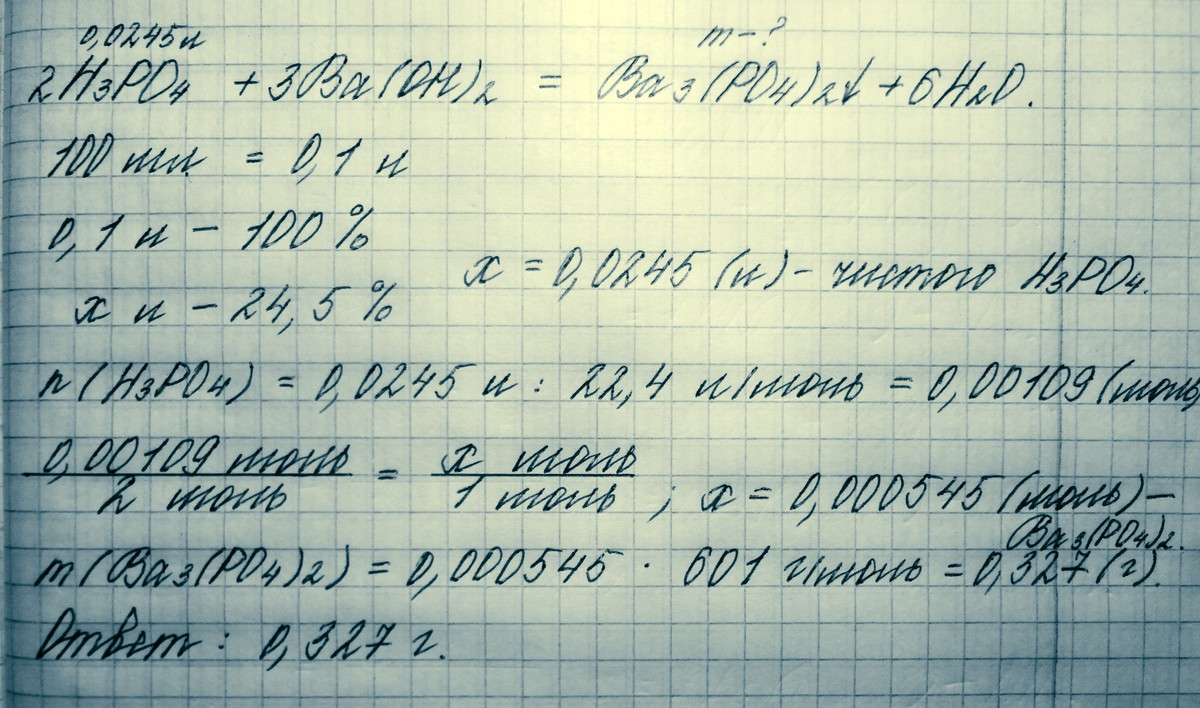 0,0245 л m - ?
2H₃PO₄ + 3Ba(OH)₂ = Ba₃(PO₄)₂↓ + 6H₂O.
100 мл = 0,1 л
0,1 л - 100 %
x = 0,0245 (л) - чистого H₃PO₄.
x л - 24,5 %
n(H₃PO₄) = 0,0245 л : 22,4 л/моль = 0,00109 (моль)
0,00109 моль / 2 моль = x моль / 1 моль ; x = 0,000545 (моль) -
Ba₃(PO₄)₂.
m(Ba₃(PO₄)₂) = 0,000545 · 601 г/моль = 0,327 (г).
Ответ : 0,327 г.